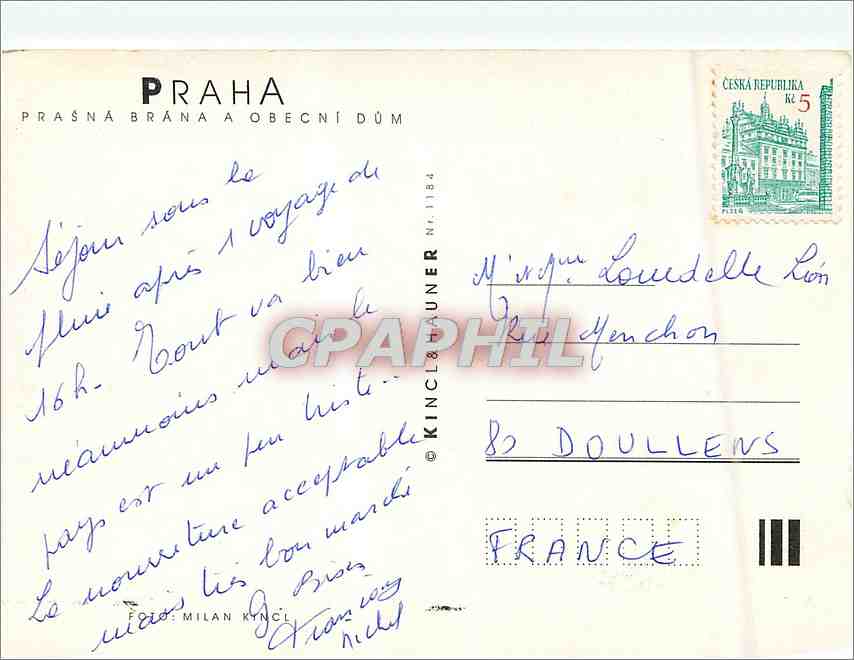 PRAHA
PRAŠNÁ BRÁNA A OBECNÍ DŮM
Séjour sous la
pluie après 1 voyage de
16h. Tout va bien
néanmoins mais le
pays est un peu triste...
La nourriture acceptable
mais très bon marché
G. Bises
Michel
FOTO: MILAN KINCL
© KINCL & HAUNER Nr. 1184
CPAPHIL
ČESKÁ REPUBLIKA
Kč 5
PLZEŇ
Mr et Mme Lourdelle Léon
Rue Menchon
80 DOULLENS
FRANCE